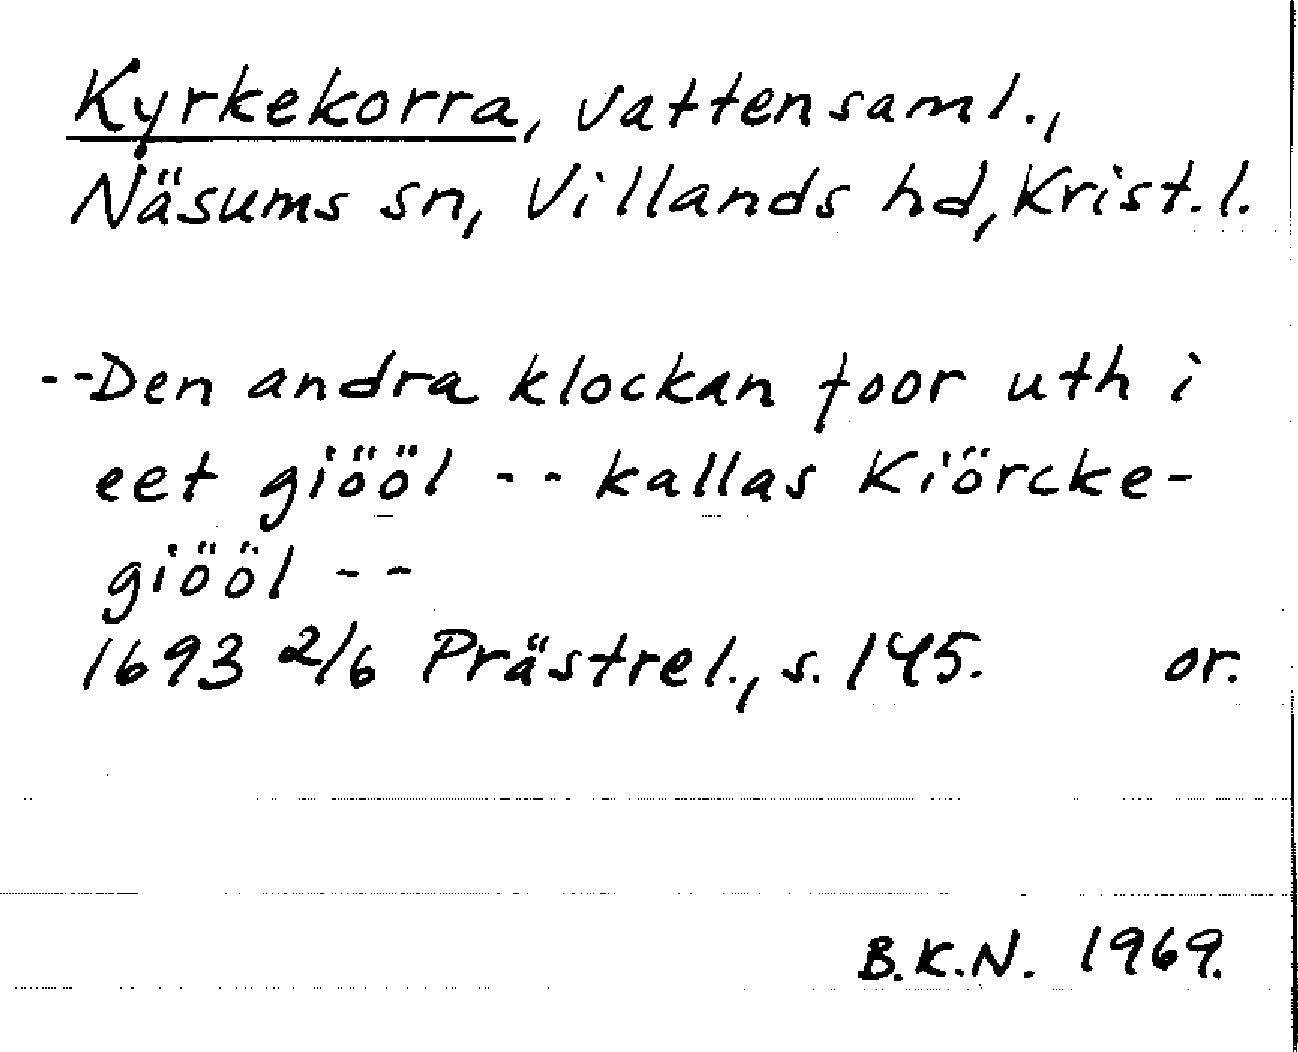 Kyrkekorra, vattensaml.,
Näsums sn, Villands hd, Krist. l.
--Den andra klockan foor uth i
eet giööl -- kallas Kiörcke-
giööl --
1693 2/6 Prästrel., s. 145. or.
B.K.N. 1969.